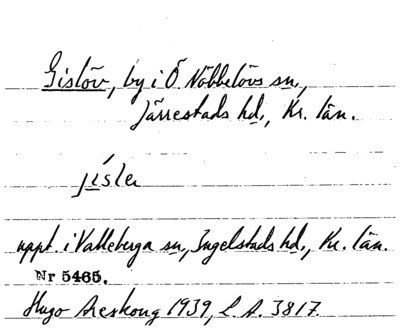 Gislöv, by i Ö. Nöbbelövs sn,
Järrestads hd., Kr. län.
jislev
uppt. i Valleberga sn, Ingelstads hd., Kr. län.
Nr 5465.
Hugo Areskoug 1939, L. A. 3817.